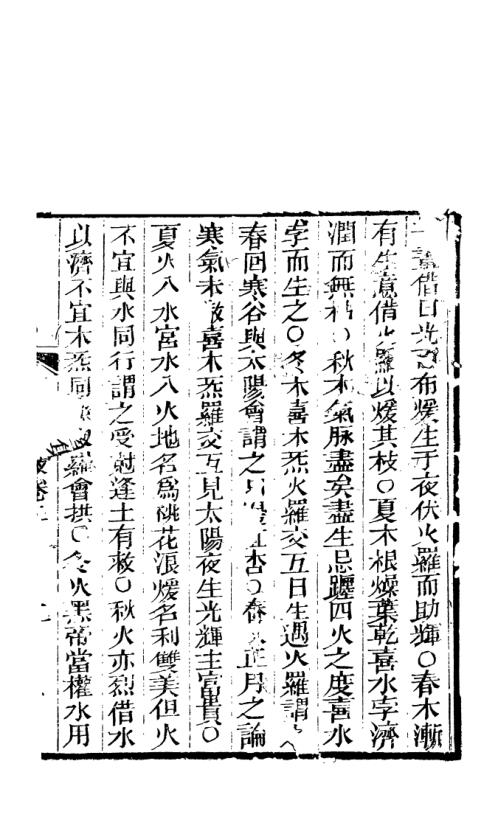 借日光以布煖生于夜伏火羅而助輝○春木漸
有生意借火羅以煖其枝○夏木根燥葉乾喜水孛濟
潤而無枯○秋木氣脉盡矣盡生忌躔四火之度喜水
孛而生之○冬木喜木炁火羅交互日生遇火羅謂之
春回寒谷與太陽會謂之日紅杏○春火正月之論
寒氣未散喜木炁羅交互見太陽夜生光輝主富貴○
夏火入水宮水入火地名爲桃花浪煖名利雙美但火
不宜與水同行謂之受尅逢土有救○秋火亦烈借水
以濟不宜木炁同羅會拱○冬火黑帝當權水用